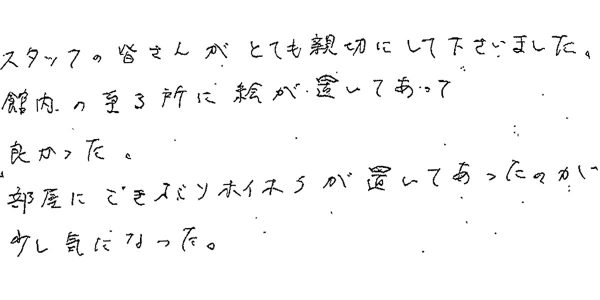 スタッフの皆さんがとても親切にして下さいました。
館内の至る所に絵が置いてあって
良かった。
部屋にごきぶりホイホイが置いてあったのが
少し気になった。